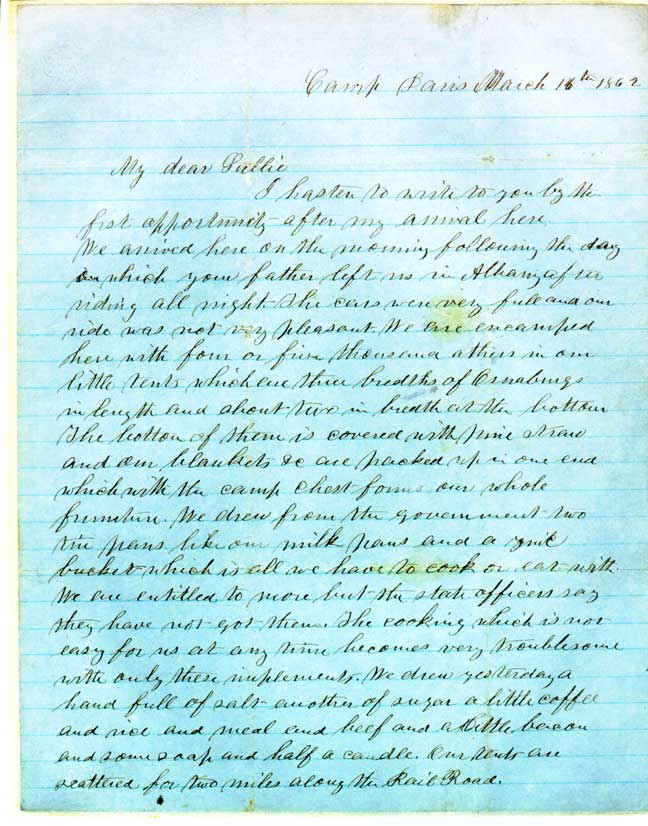 Camp Davis March 16th 1862
My dear Tullie
I hasten to write to you by the
first opportunity after my arrival here.
We arrived here on the morning following the day
on which your father left us in Albany after
riding all night. The cars were very full and our
ride was not very pleasant. We are encamped
here with four or five thousand others in our
little tents which are three bredths of Osnaburgs
in length and about two in bredth at the bottom
The bottom of them is covered with pine straw
and our blankets &c are packed up in one end
which with the camp chest forms our whole
furniture. We drew from the government two
tin pans like our milk pans and a zinc
bucket which is all we have to cook or eat with.
We are entitled to more but the state officers say
they have not got them. The cooking which is not
easy for us at any time becomes very troublesome
with only these implements. We drew yesterday a
hand full of salt another of sugar a little coffee
and rice and meal and beef and a little bacon
and some soap and half a candle. Our tents are
scattered for two miles along the Rail Road.